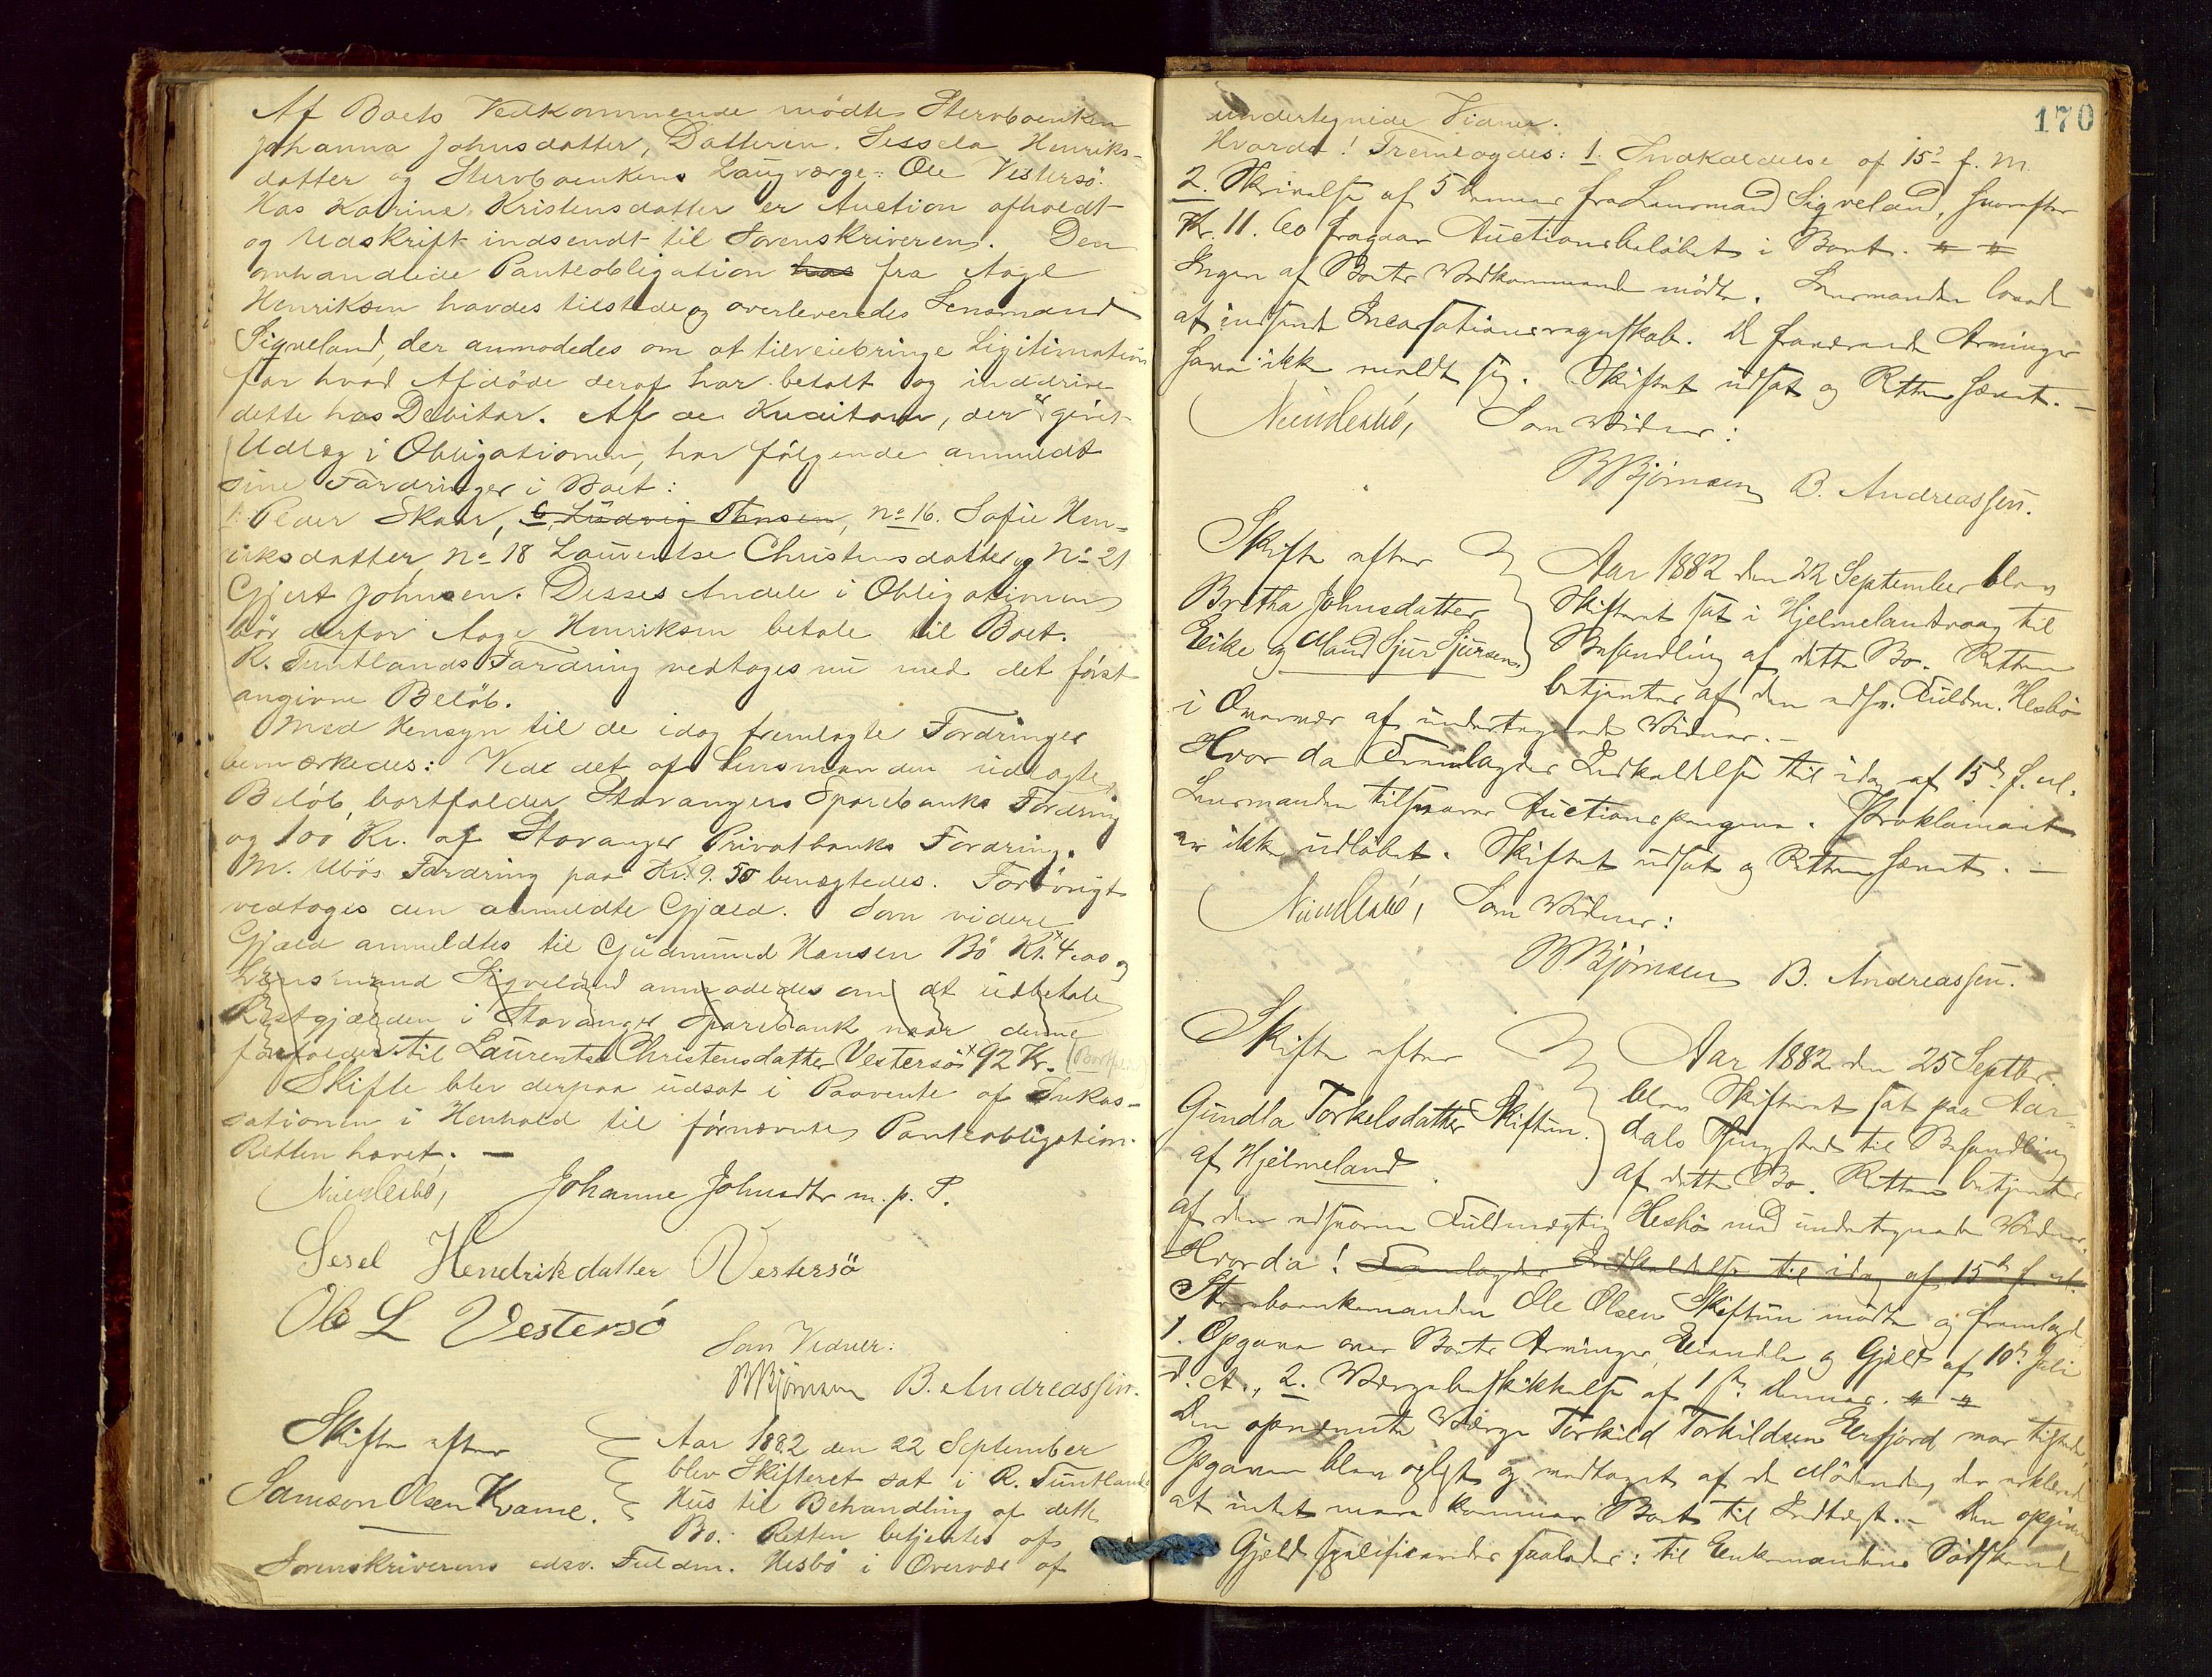 Af Boets Vedkommende mödte Stervboenken
Johanna Johnsdatter, Datteren Sessela Henriks-
datter og Stervboenkens Laugværge: Ole Vestersö.
Hos Katrine Kristensdatter er Auction afholdt
og Udskrift indsendt til Sorenskriveren. Den
omhandlede Panteobligation har fra Aage
Henriksen havdes tilstede og overleveredes Lensmand
Sigveland, der anmodedes om at tilveiebringe Legitimation
for hvad Afdöde deraf har betalt og inddrive
dette hos Debitor. Af de Kreditorer, der er givet
Udlæg i Obligationen, har fölgende anmeldt
sine Fordringer i Boet:
1. Peder Skaar, 6, Ludvig Hansen, No 16. Sofie Hen-
riksdatter, No 18 Laurentse Christensdatter og No 21
Gjert Johnsen. Disses Andele i Obligationen
bör derfor Aage Henriksen betale til Boet.
R. Tuntlands Fordring vedtoges nu med det först
angivne Belöb.
Med Hensyn til de idag fremlagte Fordringer
bemærkedes: Ved det af Lensmanden udlagte
Belöb, bortfalder Stavangers Sparebanks Fordring
og 100 Kr. af Stavanger Privatbanks Fordring.
M. Ubös Fordring paa Kr. 9.50 benægtedes. Forövrigt
vedtoges den anmeldte Gjæld. Som videre
Gjæld anmeldtes til Gudmund Hansen Bö Kr. 4.00 og
Lensmand Sigveland anmodedes om at udbetale
Restgjælden i Stavanger Sparebank naar denne
forfalder til Laurentse Christensdatter Vestersö 92 Kr.
Skifte blev derpaa udsat i Paavente af Inkas-
sationen i Henhold til fornævnte Panteobligation.
Retten hævet. —
Johanne Johnsdtr m. p. P.
Sesel Hendrikdatter Vestersö
Ole L Vestersö
Som Vidner:
B Bjørnsen B. Andreassen.
Skifte efter
Samson Olsen Kvame.
Aar 1882 den 22 September
blev Skifteret sat i R. Tuntlands
Hus til Behandling af dette
Bo. Retten betjentes af
Sorenskriverens edsv. Fuldm. Hesbö i Overvær af
170
undertegnede Vidner.
Hvorda! Fremlagdes: 1. Indkaldelse af 15de f. M.
2. Skrivelse af 5 dennes fra Lensmand Sigveland, hvorefter
Kr. 11.60 fragaar Auctionsbelöbet i Boet. " "
Ingen af Boets Vedkommende mödte. Lensmanden lovede
at indsende Incassationsregnskab. De fraværende Arvinger
have ikke meldt sig. Skiftet udsat og Retten hævet. —
Som Vidner:
B Bjørnsen B. Andreassen.
Skifte efter
Bretha Johnsdatter
Eike og Mand Sjur Sjursen
Aar 1882 den 22 September blev
Skifteret sat i Hjelmelandvaag til
Behandling af dette Bo. Retten
betjentes af den edsv. Fuldm. Hesbö
i Overvær af undertegnede Vidner. —
Hvor da Fremlagdes Indkaldelse til idag af 15de f. M.
Lensmanden tilsvarer Auctionspengene. Proklamaet
er ikke udlöbet. Skiftet udsat og Retten hævet. —
Som Vidner:
B. Bjørnsen B. Andreassen.
Skifte efter
Gundla Torkelsdatter Skiftun.
af Hjelmeland.
Aar 1882 den 25 Septbr.
blev Skifteret sat paa Aar-
dals Thingsted til Behandling
af dette Bo. Retten betjentes
af den edsvorne Fuldmægtig Hesbö med undertegnede Vidner.
Hvorda! Fremlagdes Indkaldelse til idag af 15de f. M.
Stervboenkemanden Ole Olsen Skiftun mödte og fremlagde
1. Opgave over Boets Arvinger, Eiendele og Gjæld af 10de Juli
d. A., 2. Værgebeskikkelse af 1ste dennes. " "
Den opnævnte Værge Torkild Torkildsen Erfjord var tilstede.
Opgaven blev oplæst og vedtaget af de Mödende, der erklærede
at intet mere kommer Boet til Indtægt. — Den opgivne
Gjæld specificeredes saaledes: til Enkemandens Södskend